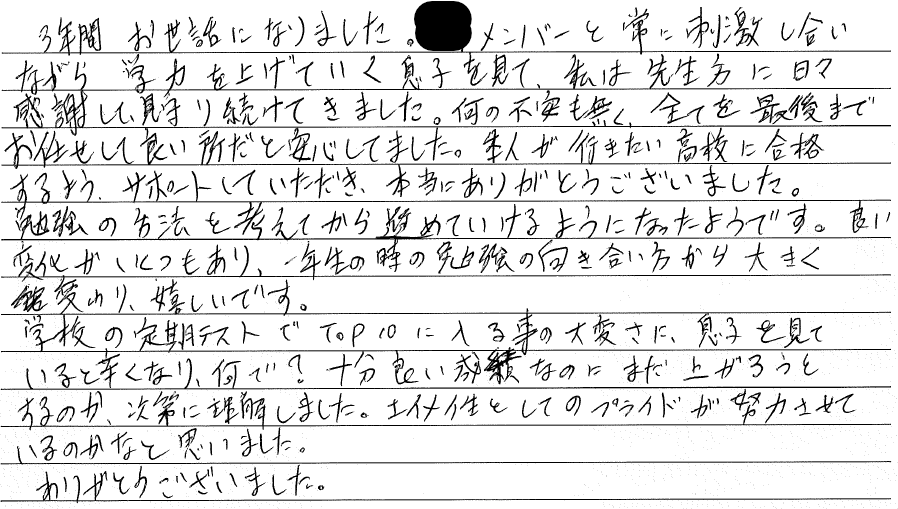 3年間 お世話になりました。メンバーと常に刺激し合い
ながら 学力を上げていく息子を見て、私は先生方に日々
感謝して、見守り続けてきました。何の不安も無く、全てを最後まで
お任せして良い所だと安心してました。本人が行きたい高校に合格
するよう、サポートしていただき、本当にありがとうございました。
勉強の方法を考えてから進めていけるようになったようです。良い
変化がいくつもあり、一年生の時の勉強の向き合い方から大きく
変わり、嬉しいです。
学校の定期テストでTOP10に入る事の大変さに、息子を見て
いると辛くなり、何で?十分良い成績なのにまだ上がろうと
するのか、次第に理解しました。エイメイ生としてのプライドが努力させて
いるのかなと思いました。
ありがとうございました。